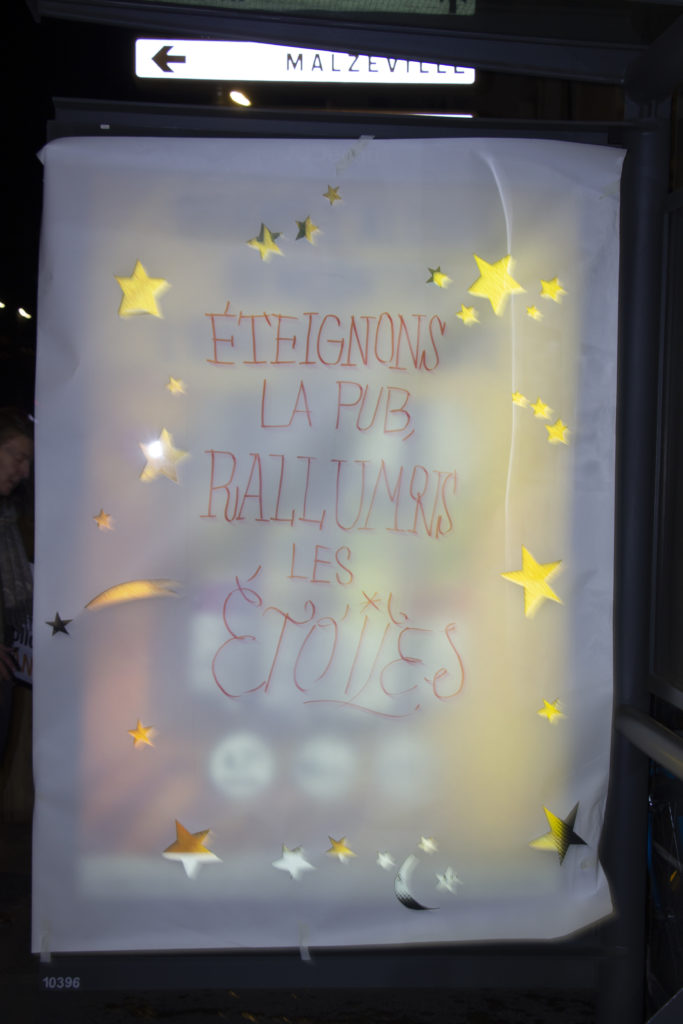 MALZEVILLE
ÉTEIGNONS
LA PUB,
RALLUMNS
LES
ÉTOILES
10396